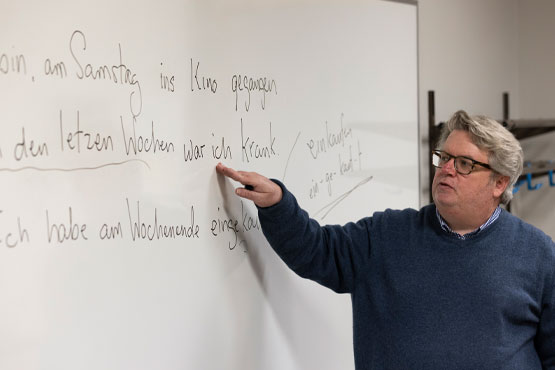 bin, am Samstag ins Kino gegangen
den letzen Wochen war ich Krank.
einkaufen
ein-ge-kauf-t
Ich habe am Wochenende eingekau